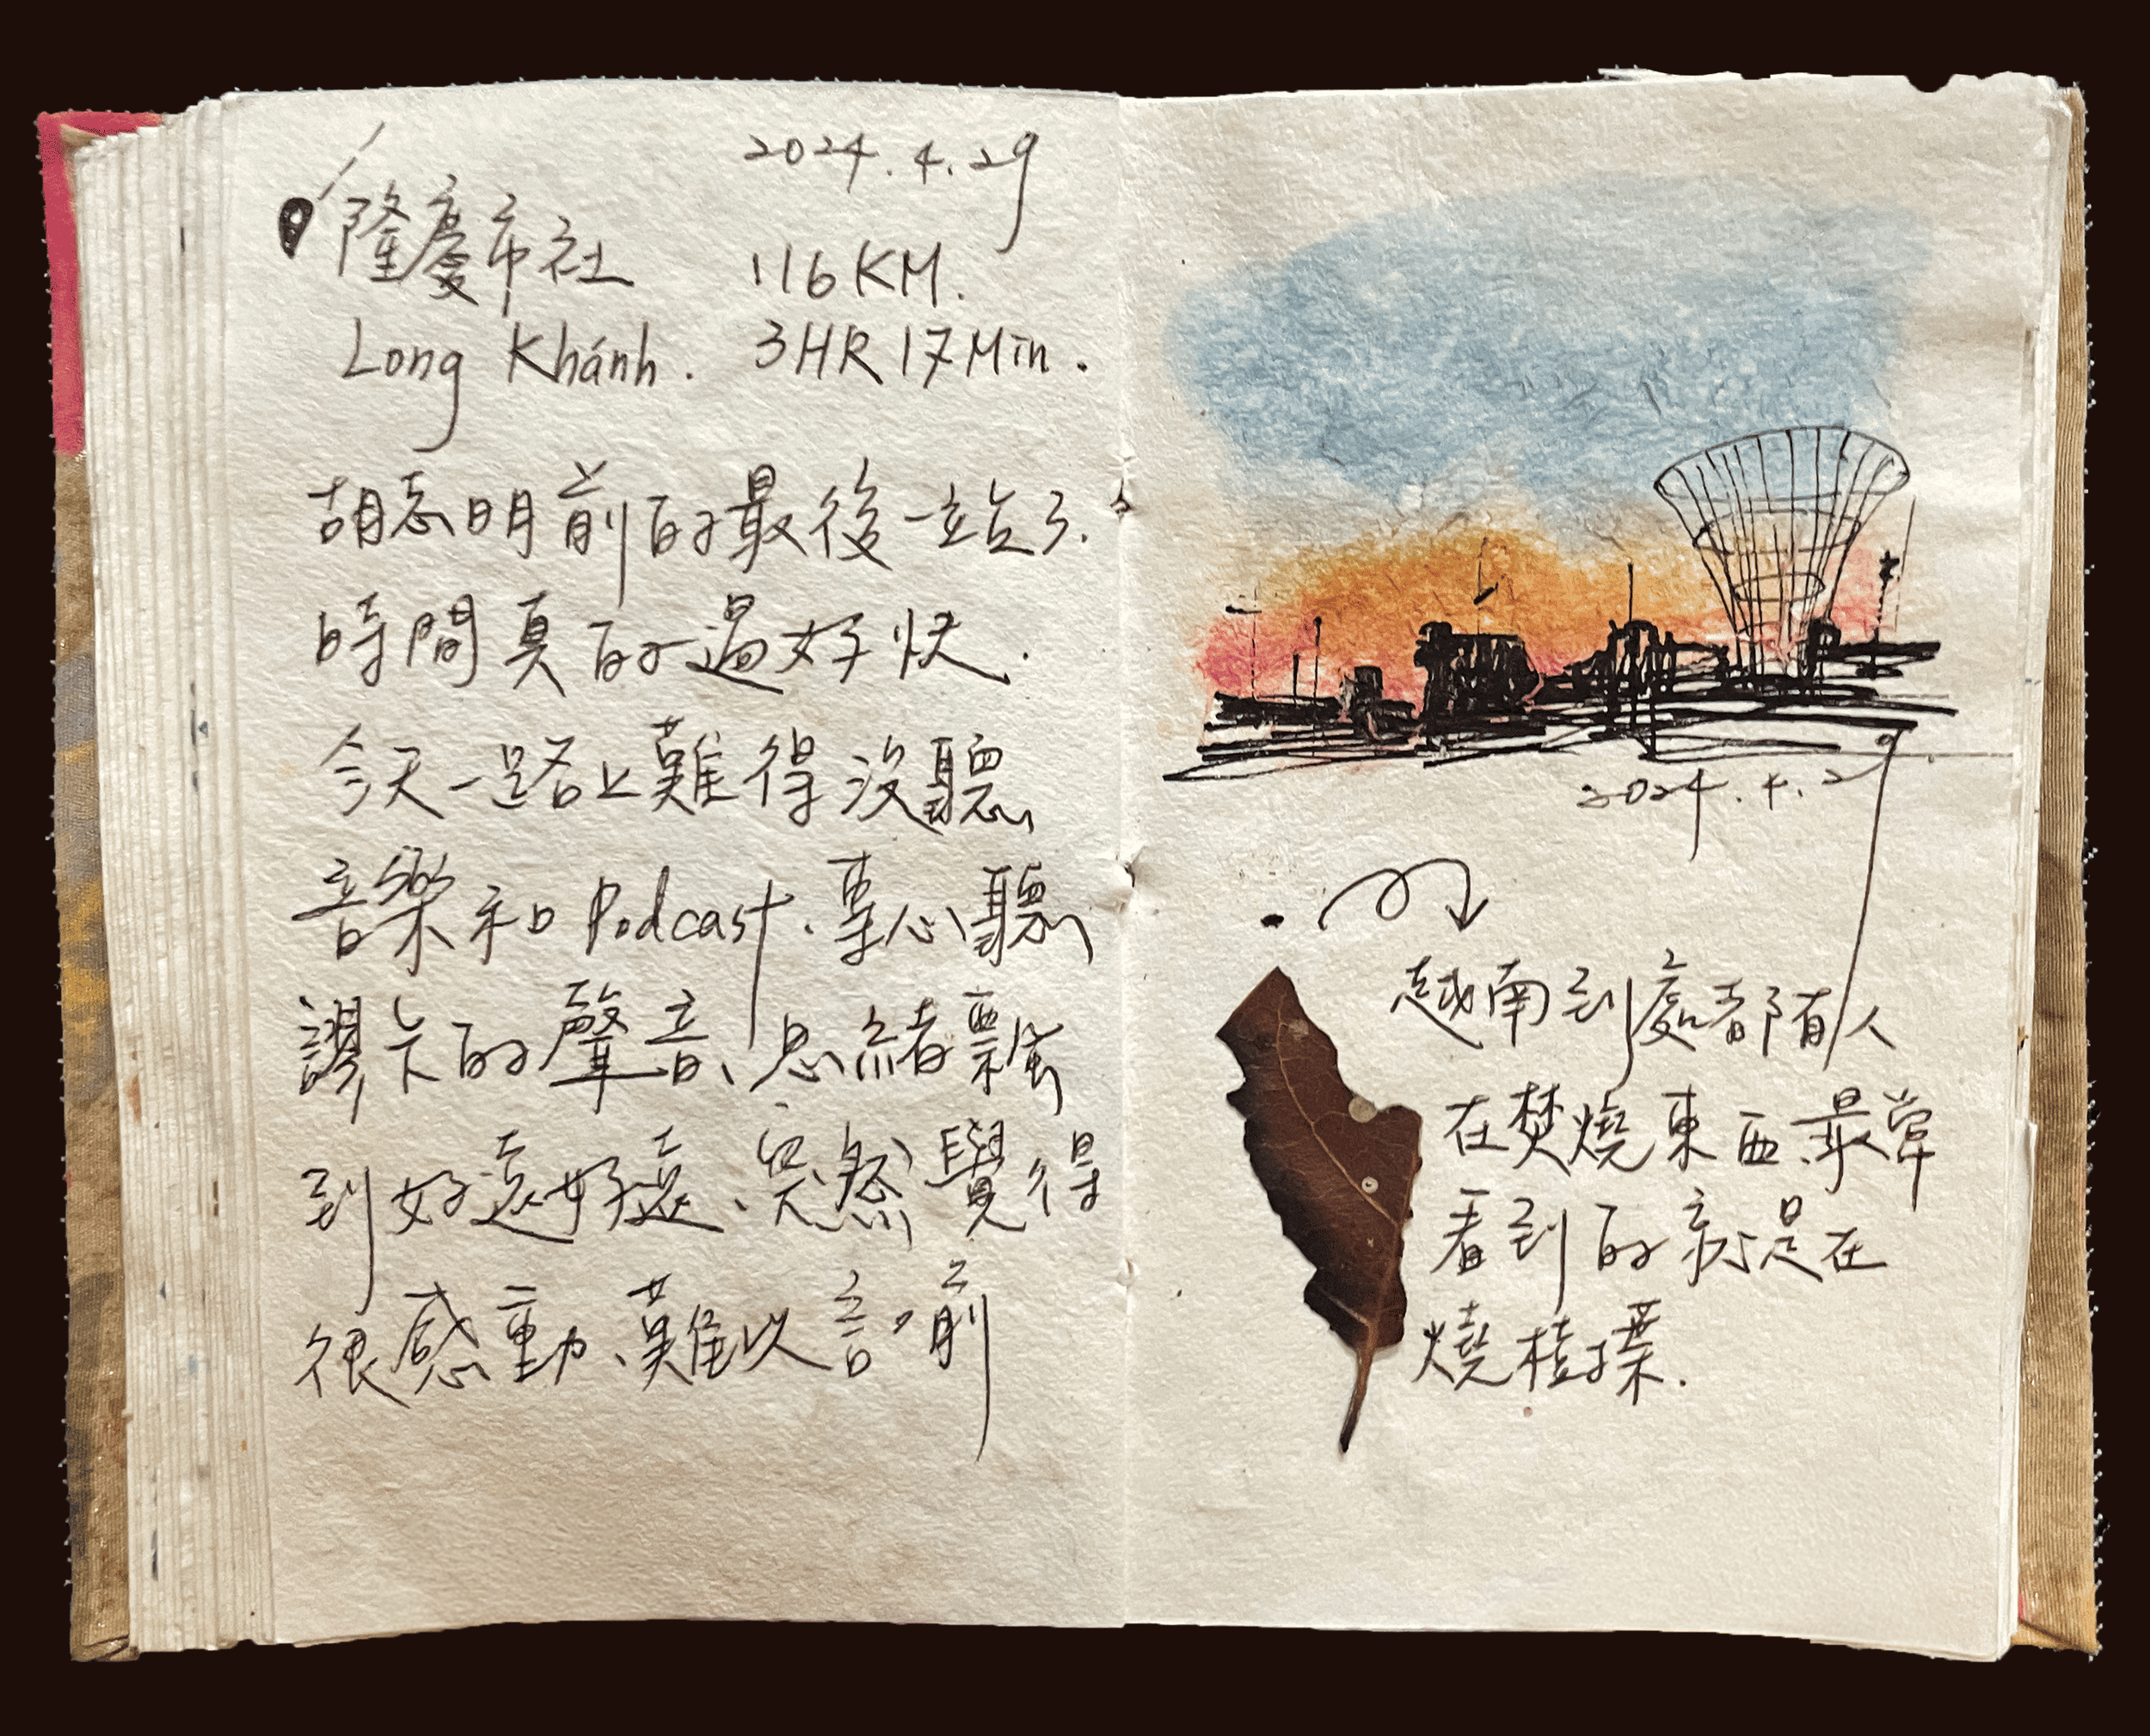 2024.4.29
隆慶市社 116KM.
Long Khánh. 3HR17Min.
胡志明前的最後一站了.
時間真的過好快.
今天一路上難得沒聽
音樂和Podcast、專心聽
謬卡的聲音、思緒飄
到好遠好遠、突然覺得
很感動、難以言喻
2024.4.29
越南到處都有人
在焚燒東西、最常
看到的就是在
燒枯葉.